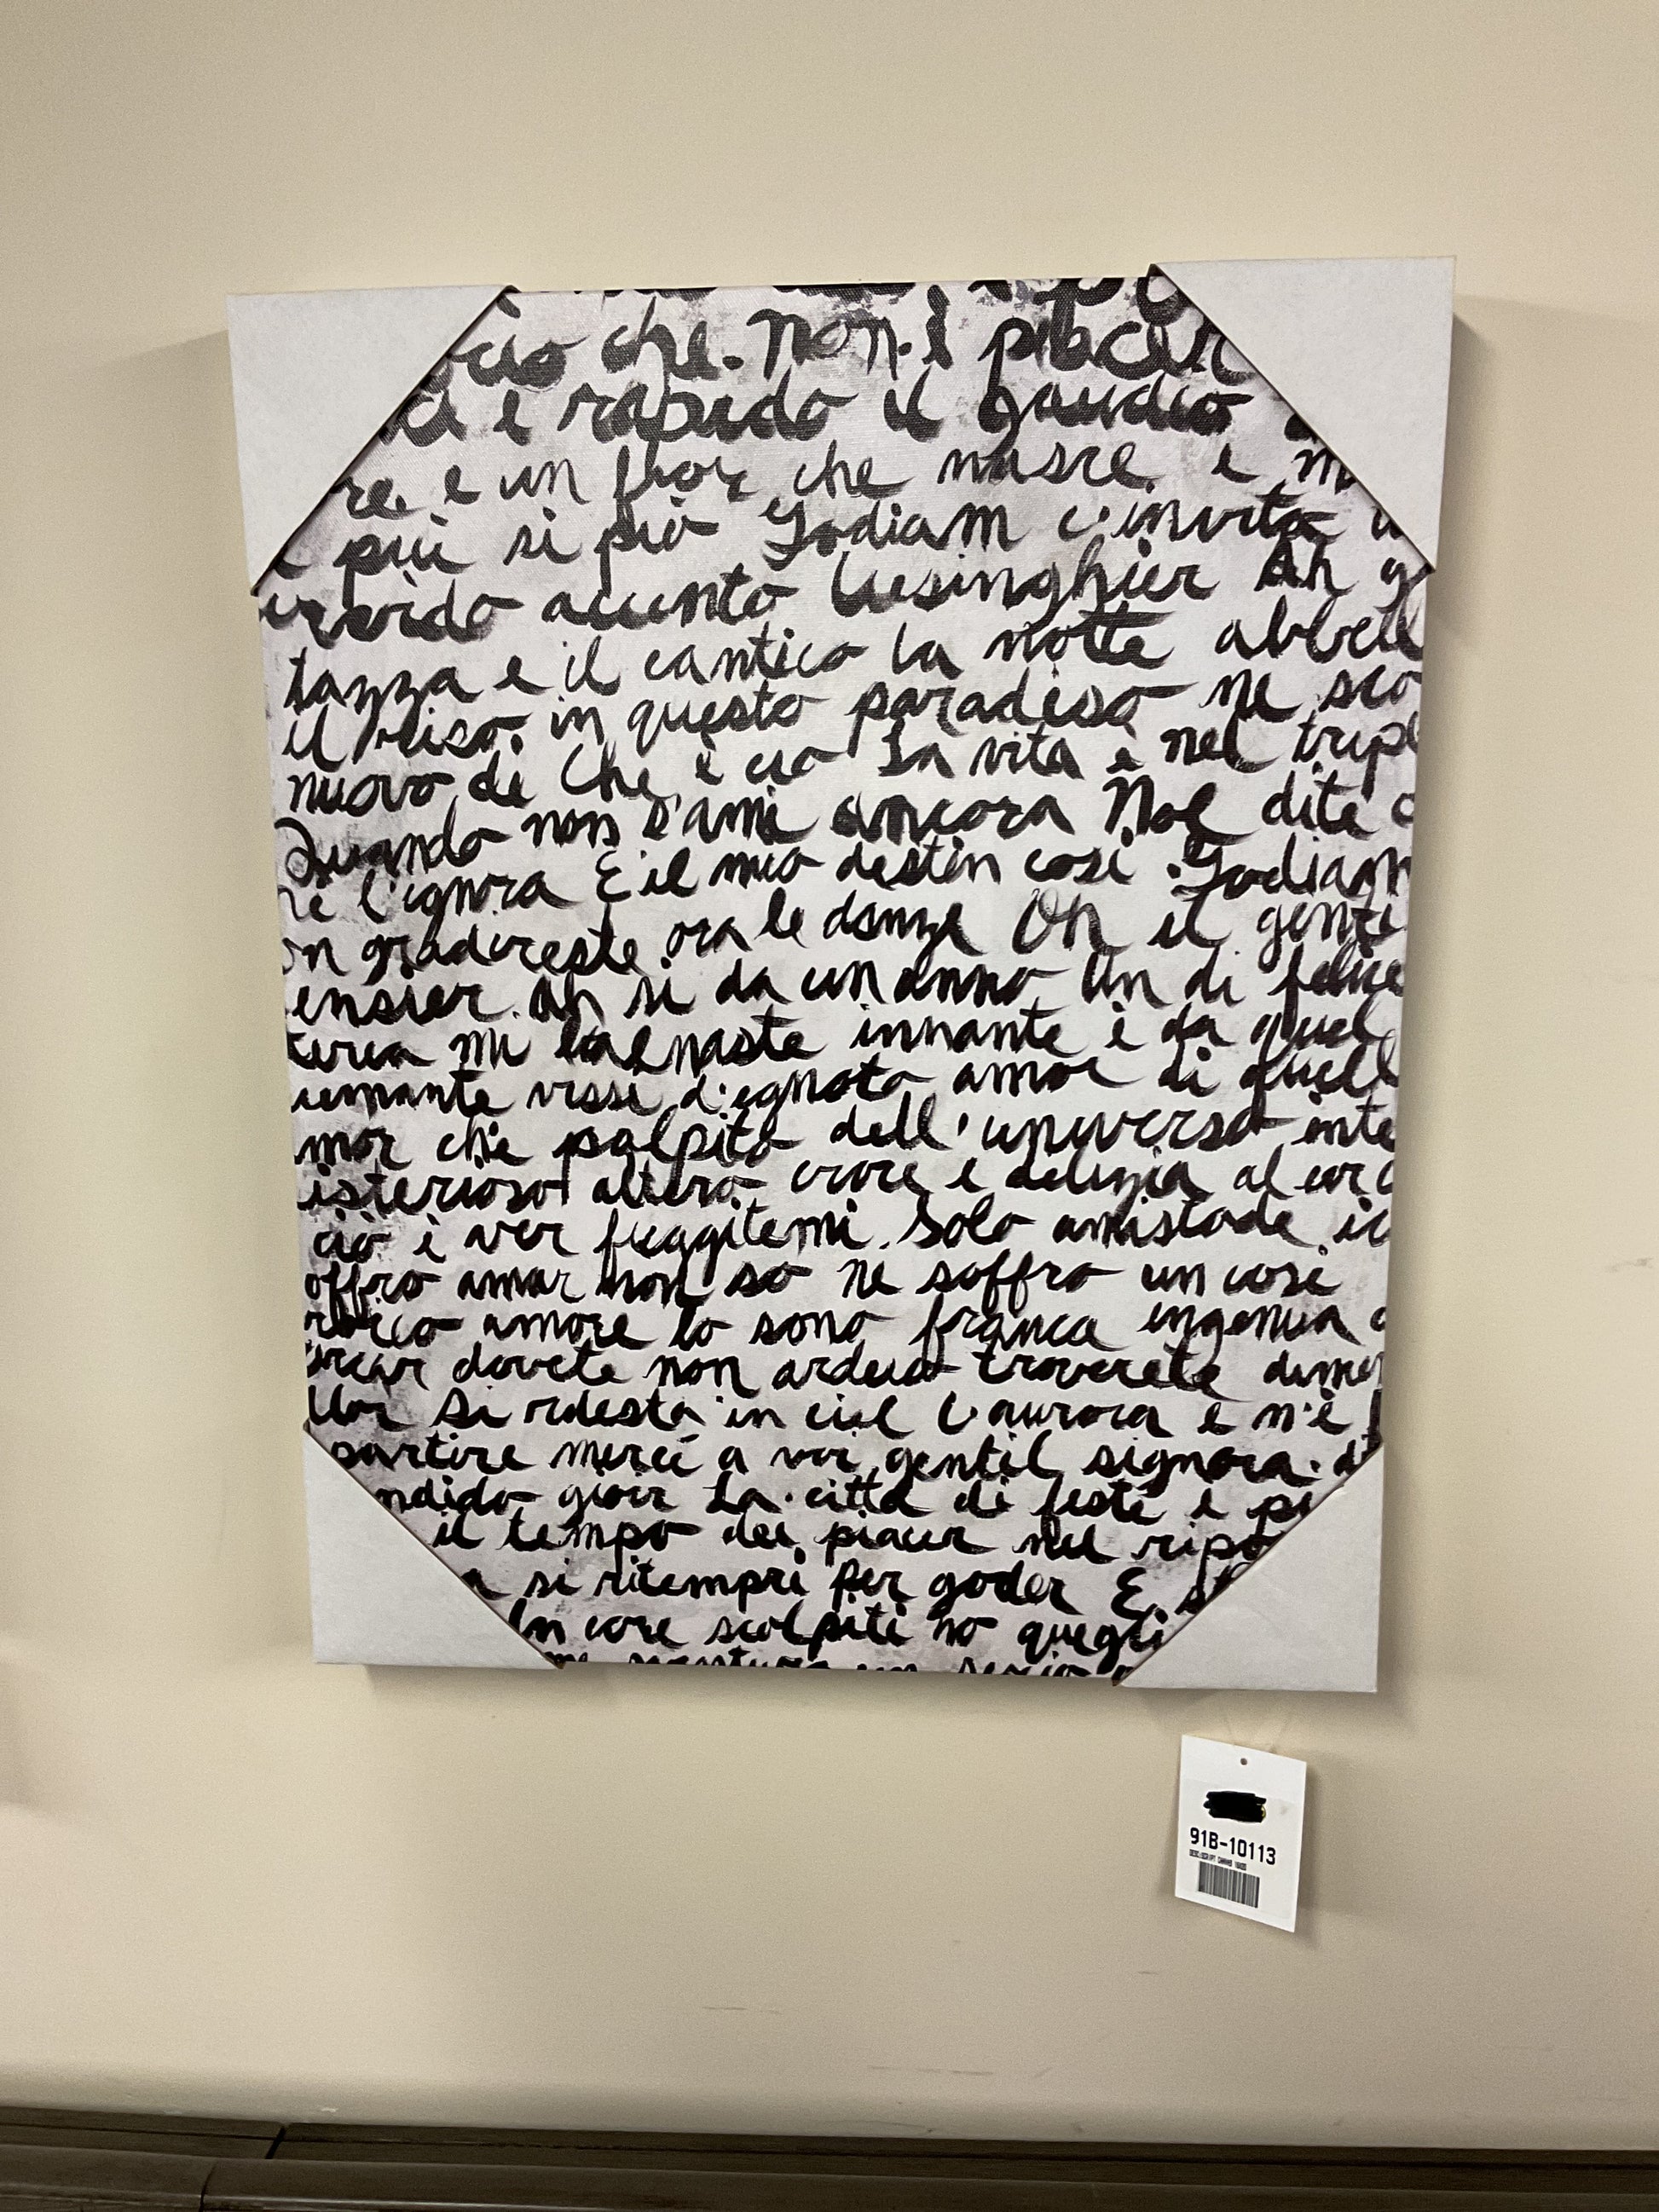 che. non è piacer
è rapido il gaudio
re. e un fior che nasce e m
più si può Godiam c'invita u
ervido accento lusinghier Ah g
tazza e il cantico la notte abbell
il riso. in questo paradiso ne sco
nuovo di Che è ciò La vita è nel trip
Quando non s'ami ancora Nol dite
l'ignora È il mio destin così. Godiam
on gradireste ora le danze Oh il genti
ensier. Ah si da un anno Un di felice
terea mi balenaste innante e da quel
remante vissi d'ignoto amor di quell
mor che palpito dell'universo inte
isterioso altero croce e delizia al cor
ciò è ver fuggitemi. Solo amistade io
offro amar non so ne soffro un cosi
roico amore Io sono franca ingenua
rcar dovete non arduo troverete dimen
llor Si ridesta in ciel l'aurora e n'è
partire mercé a voi gentil signora. di
ndido gioir La città di feste è pi
il tempo dei piacer nel ripo
a si ritempri per goder E
In core scolpiti ho quegli
91B-10113